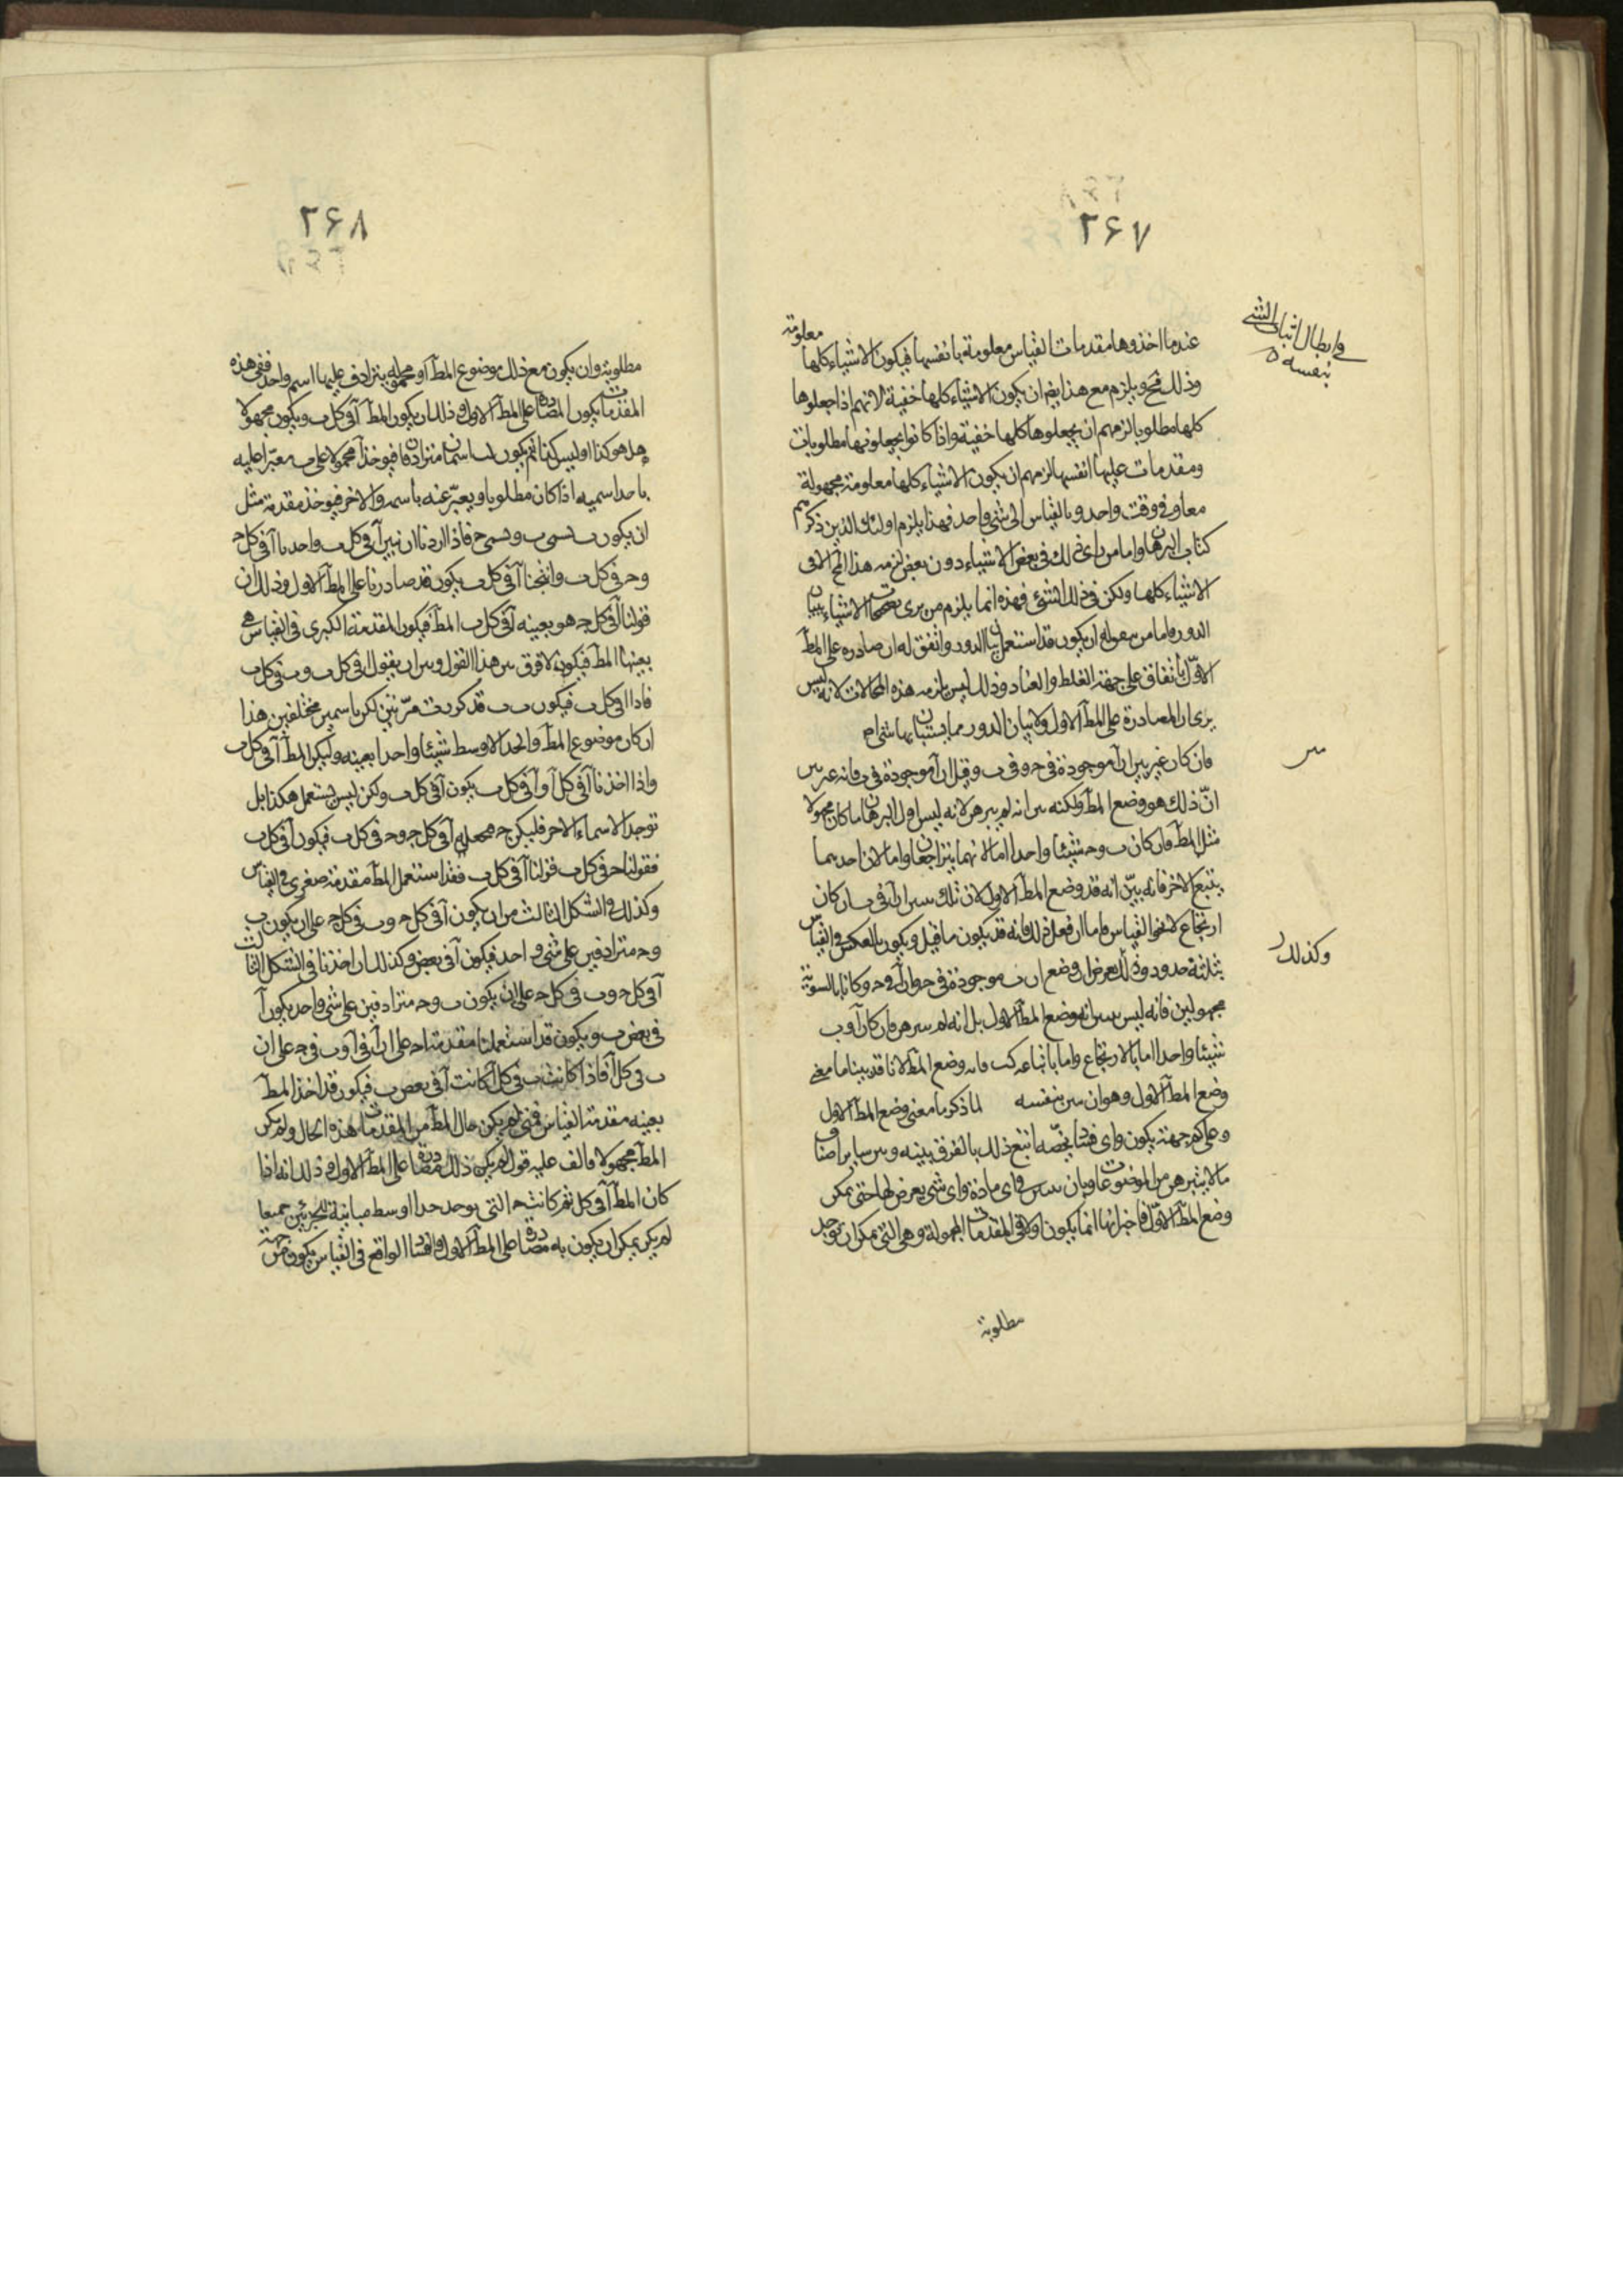 ٢۶٧
في ابطال اثبات الشئ
بنفسه
عندما اخذوها مقدمات القياس معلومة بانفسها فيكون الاشياء كلها معلومة
وذلك مح ويلزم مع هذا ايضا ان يكون الاشياء كلها خفية لانهم اذا جعلوها
كلها مطلوبا لزمهم ان يجعلوها كلها خفية واذا كانوا يجعلونها مطلوبات
ومقدمات عليها انفسها لزمهم ان يكون الاشياء كلها معلومة مجهولة
معا وفي وقت واحد وبالقياس الى شئ واحد فهذا يلزم اولئك الذين ذكرهم
كتاب البرهان واما من راى ذلك في بعض الاشياء دون بعض لزمه هذا المح لا في
الاشياء كلها ولكن في ذلك الشئ فهذه انما يلزم من يرى تصحيح الاشياء ببيان
الدور فاما من ان يكون قد استعمل بيان الدور واتفق له ان صادره على المط
الاول باتفاق على جهة الغلط والعناد وذلك ليس يلزمه هذه المحالات لانه ليس
يرى ان المصادرة على المط الاول ولا بيان الدور مما يستبان بها شئ ام
فان كان غير بين ان آ موجودة في ح وفي ب وقيل ان آ موجودة في ب فانه غير بين
ان ذلك هو وضع المط ولكنه بين انه لم يبرهن لانه ليس اول البرهان ما كان مجهولا
مثل المط فان كان ب وح شيئا واحدا اما لانهما يتراجعان واما لان احدهما
يتبع الاخر فانه يبين انه قد وضع المط الاول لان تلك بين ان آ في ب ان كان
ارتجاع لا نحو القياس فاما ان فعل ذلك فانه قد يكون ما قيل ويكون بالعكس في القياس
بثلثة حدود وكذلك يعرض ان وضع ان ب موجودة في ح وان آ في ح وكانا بالسوية
مجهولين فانه ليس بين انه وضع المط الاول بل انه لم يبرهن فان كان آ و ب
شيئا واحدا اما بالارتجاع واما باتباعه فانه وضع المط لانا قد بينا ما معنى
وضع المط الاول وهو ان يبين بنفسه لما ذكر ما معنى وضع المط الاول
وعلى كم جهة يكون واى فساد يخصه اتبع ذلك بالفرق بينه وبين ساير اصناف
ما لا يتبرهن من الموضوعات وبان يبين في اى مادة واى شئ يعرض لها حتى يمكن
وضع المط الاول فاخبر انها انما يكون اولا في المقدمات المجهولة وهى التى يمكن ان توجد
مطلوبة
وكذلك
٢۶٨
مطلوبة وان يكون مع ذلك موضوع المط او محموله يترادف عليها اسم واحد ففى هذه
المقدمات يكون المصادرة على المط الاول وذلك ان يكون المط آ في كل ب ويكون مجهولا
هل هو كذا او ليس كذا ثم يكون لب اسمان مترادفان فيؤخذ آ محمولا على ب معبرا عليه
باحد اسميه اذا كان مطلوبا ويعبر عنه باسمه الاخر فيؤخذ مقدمة مثل
ان يكون ب تسمى ب وتسمى ح فاذا اردنا ان نبين آ في كل ب واحدنا آ في كل ح
وح في كل ب وانتجنا آ في كل ب يكون قد صادرنا على المط الاول وذلك ان
قولنا آ في كل ح هو بعينه آ في كل ب المط فيكون المقدمة الكبرى في القياس هى
بعينها المط فيكون لا فرق بين هذا القول وبين ان يقول آ في كل ب وب في كل ب
فاذا آ في كل ب فيكون ب ب قد كررت مرتين لكن باسمين مختلفين هذا
ان كان موضوع المط والحد الاوسط شيئا واحدا بعينه وليكن المط آ في كل ب
واذا اخذنا آ في كل آ و آ في كل ب يكون آ في كل ب ولكن ليس يستعمل هكذا بل
توجد الاسماء الاخر فليكن ح محموله آ في كل ح وح في كل ب فيكون آ في كل ب
فقولنا ح في كل ب قولنا آ في كل ب فقد استعمل المط مقدمة صغرى في القياس
وكذلك في الشكل الثالث من ان يكون آ في كل ح وب في كل ح على ان يكون ب
وح مترادفين على شئ واحد فيكون آ في بعض وكذلك ان اخذنا في الشكل الثالث
آ في كل ح وب في كل ح على ان يكون ب وح مترادفين على شئ واحد يكون آ
في بعض ب ويكون قد استعملنا مقدمة اح على ان آ في آ وب في ح على ان
ب في كل آ فاذا كانت ب في كل آ كانت آ في بعض ب فيكون قد اخذ المط
بعينه مقدمة القياس فمتى لم يكن حال المط من المقدمات هذه الحال ولم يكن
المط مجهولا فالف عليه قول لم يكن ذلك مصادرة على المط الاول وذلك انه اذا
كان المط آ في كل ثم كانت ح التى يوجد حدا اوسط مباينة للجزئين جميعا
لم يكن يمكن ان يكون به مصادرة على المط الاول والفساد الواقع في القياس يكون من جهة